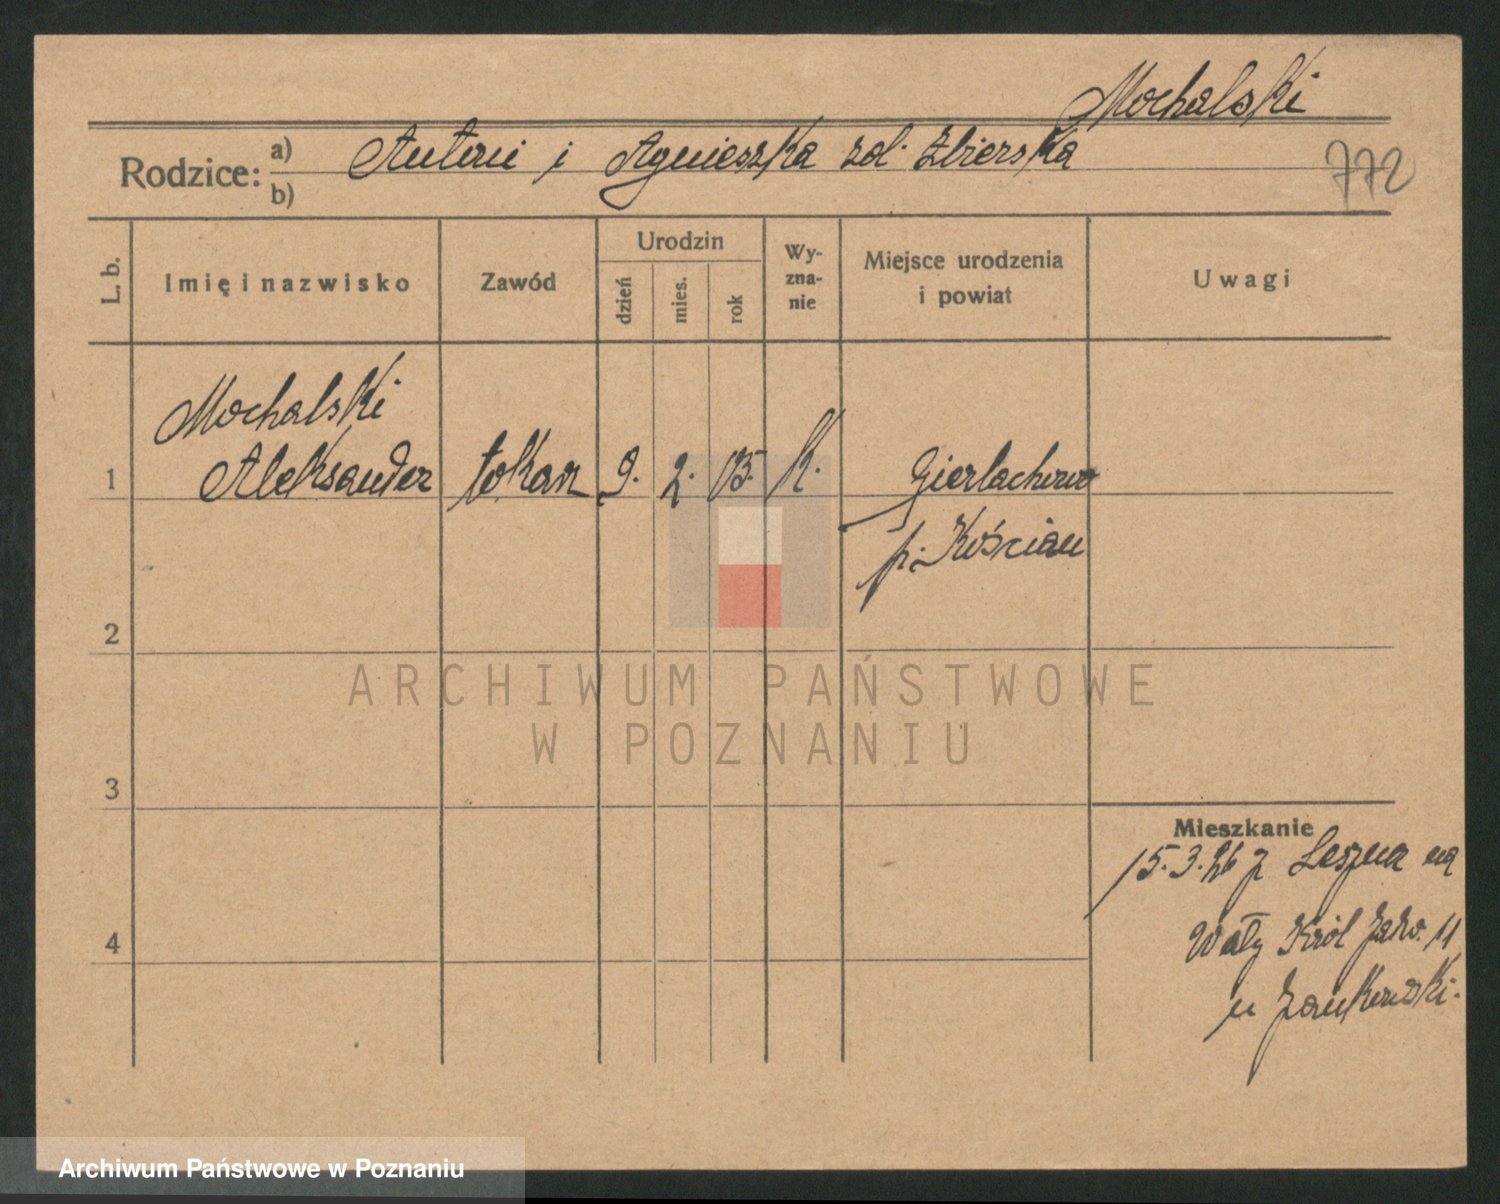 Mochalski
Rodzice: a) Antoni i Agnieszka zol. Zbierska
b)
772
L. b.
Imię i nazwisko
Zawód
Urodzin
dzień
mies.
rok
Wy-
zna-
nie
Miejsce urodzenia
i powiat
Uwagi
Mochalski
1 Aleksander tokarz 9. 2. 05. K. Gierlachowo
p. Kościan
2
3
4
Mieszkanie
15.3.26 z Leszna na
Wały Król Jadw. 11
u Jankowski.
ARCHIWUM PAŃSTWOWE
W POZNANIU
Archiwum Państwowe w Poznaniu